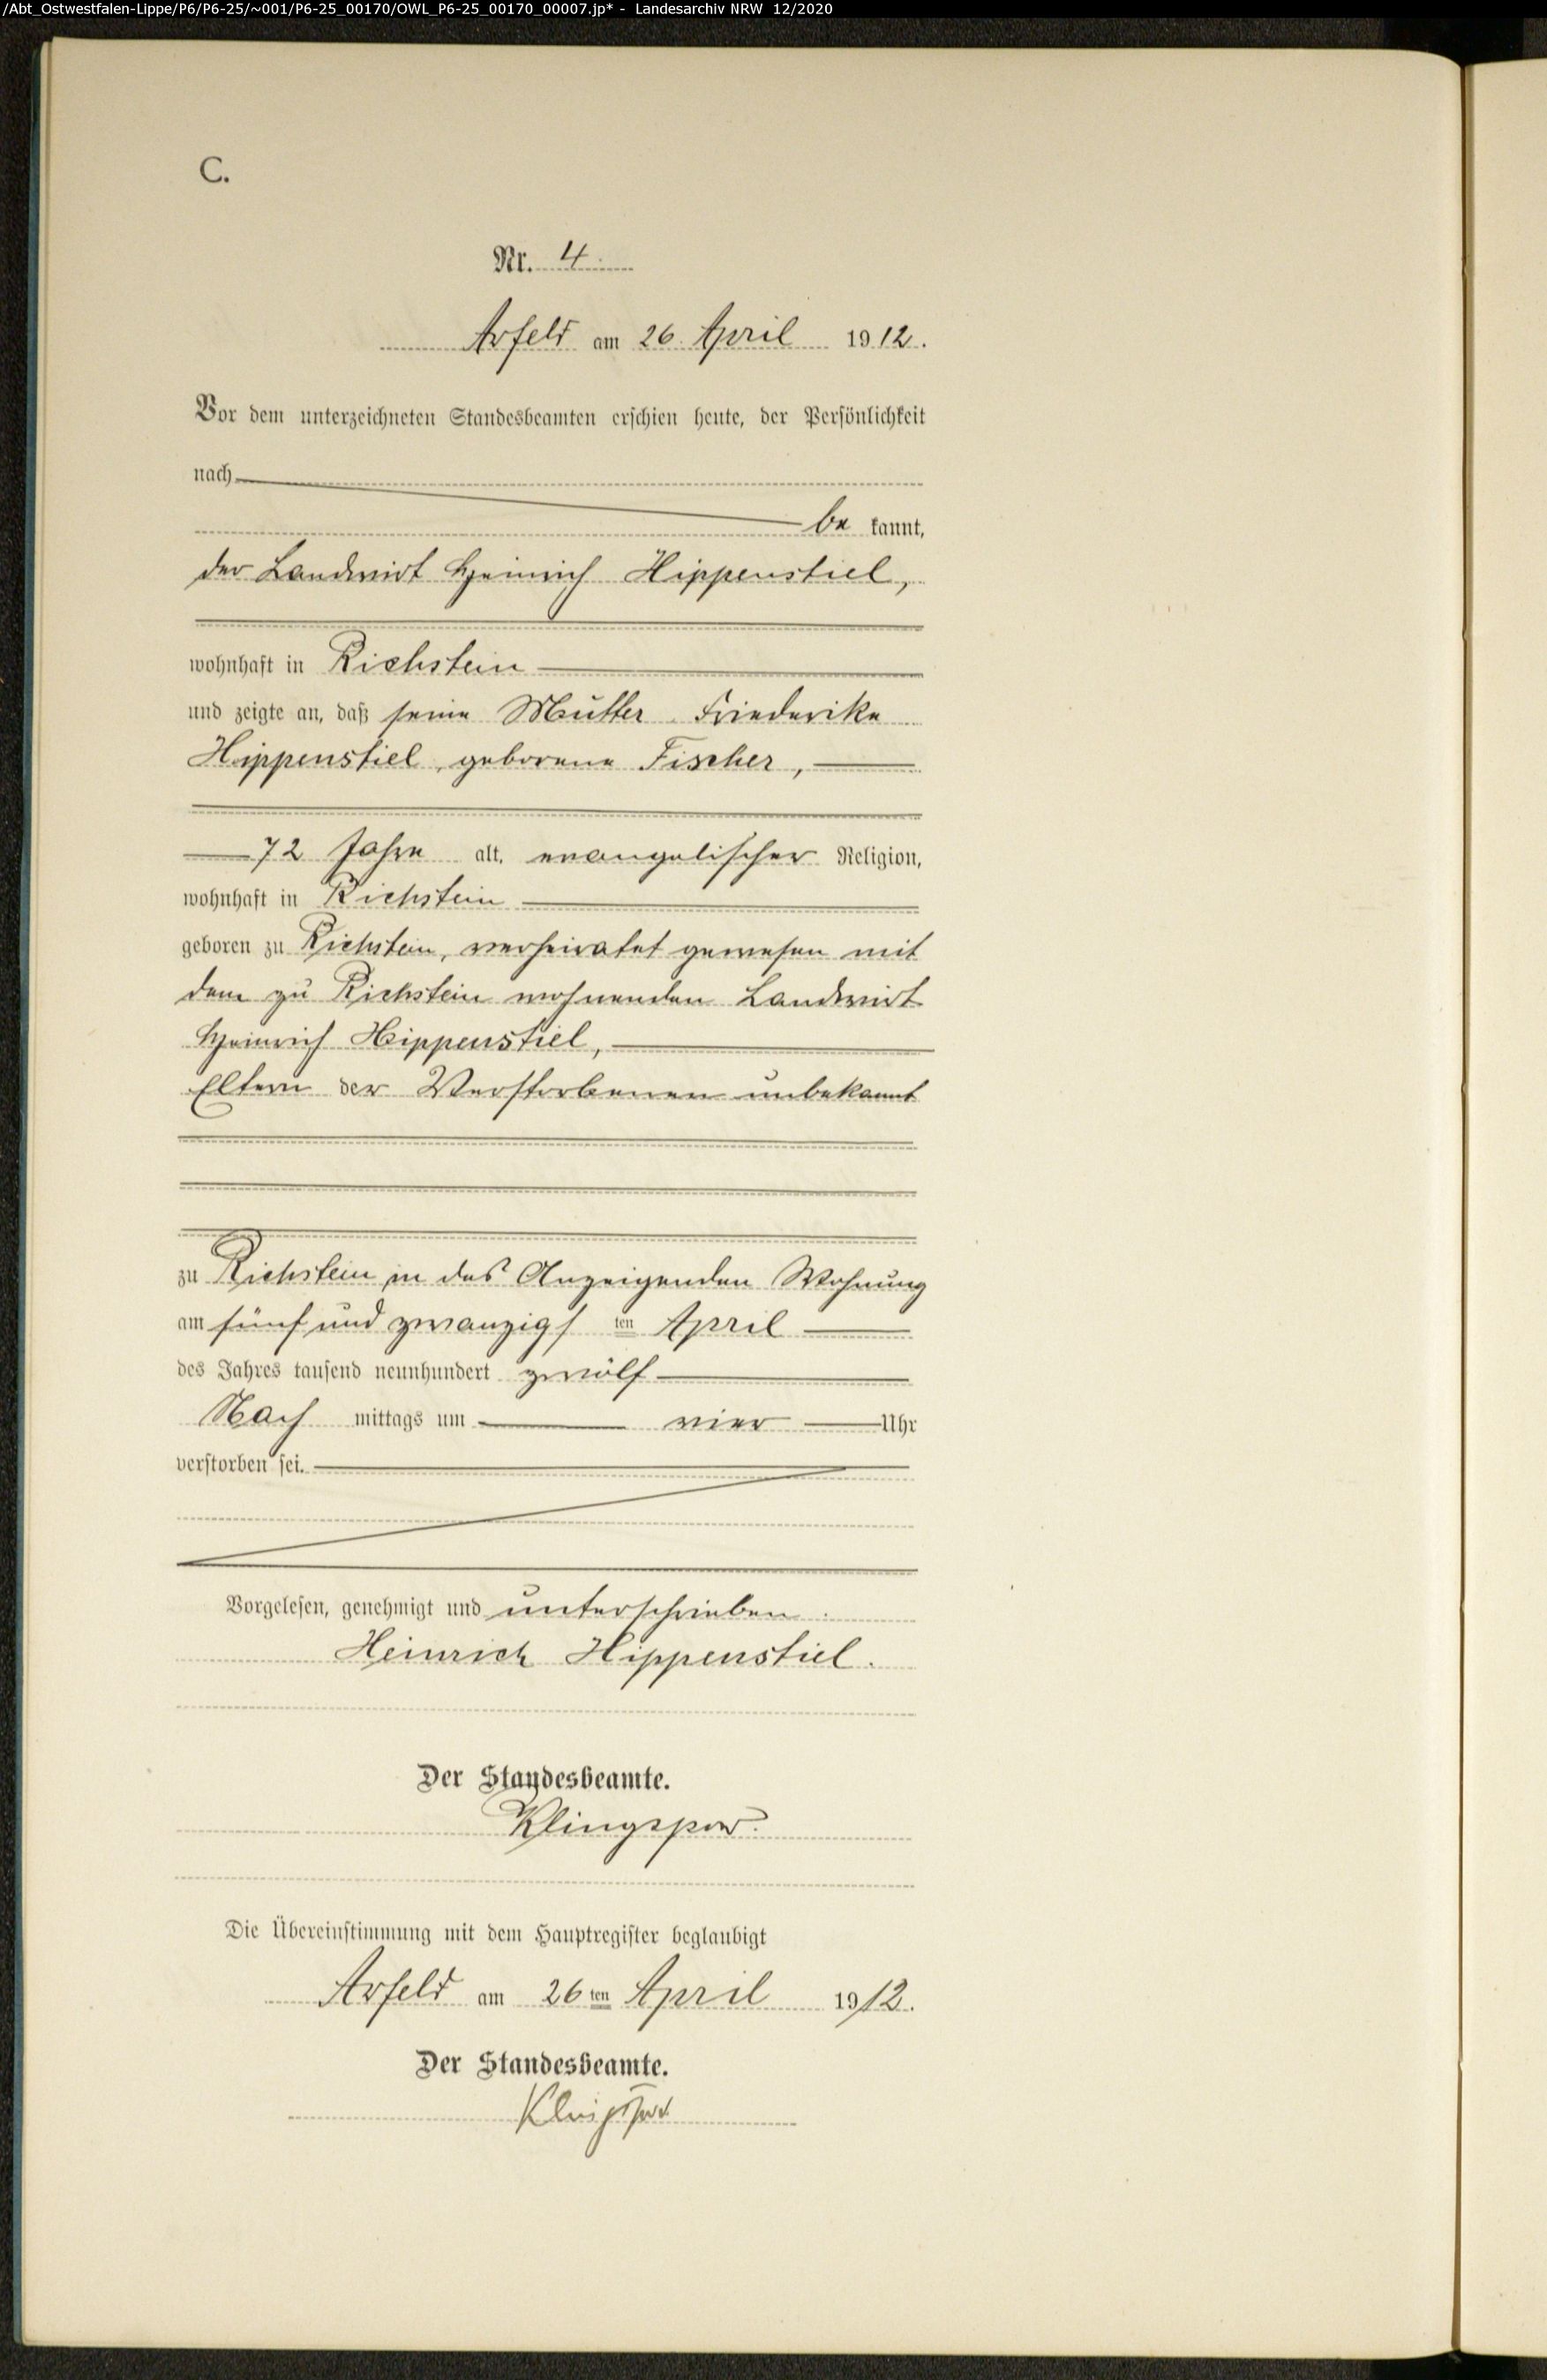 /Abt_Ostwestfalen-Lippe/P6/P6-25/~001/P6-25_00170/OWL_P6-25_00170_00007.jp* - Landesarchiv NRW 12/2020
C.
Nr. 4
Arfeld am 26. April 1912.
Vor dem unterzeichneten Standesbeamten erschien heute, der Persönlichkeit
nach
be kannt,
der Landwirt Heinrich Hippenstiel,
wohnhaft in Richstein
und zeigte an, daß seine Mutter Friederike
Hippenstiel, geborene Fischer,
72 Jahre alt, evangelischer Religion,
wohnhaft in Richstein
geboren zu Richstein, verheiratet gewesen mit
dem zu Richstein wohnenden Landwirt
Heinrich Hippenstiel,
Eltern der Verstorbenen unbekannt
zu Richstein in des Anzeigenden Wohnung
am fünf und zwanzigs ten April
des Jahres tausend neunhundert zwölf
Nach mittags um vier Uhr
verstorben sei.
Vorgelesen, genehmigt und unterschrieben.
Heinrich Hippenstiel.
Der Standesbeamte.
Klingspor.
Die Übereinstimmung mit dem Hauptregister beglaubigt
Arfeld am 26ten April 1912.
Der Standesbeamte.
Klingspor